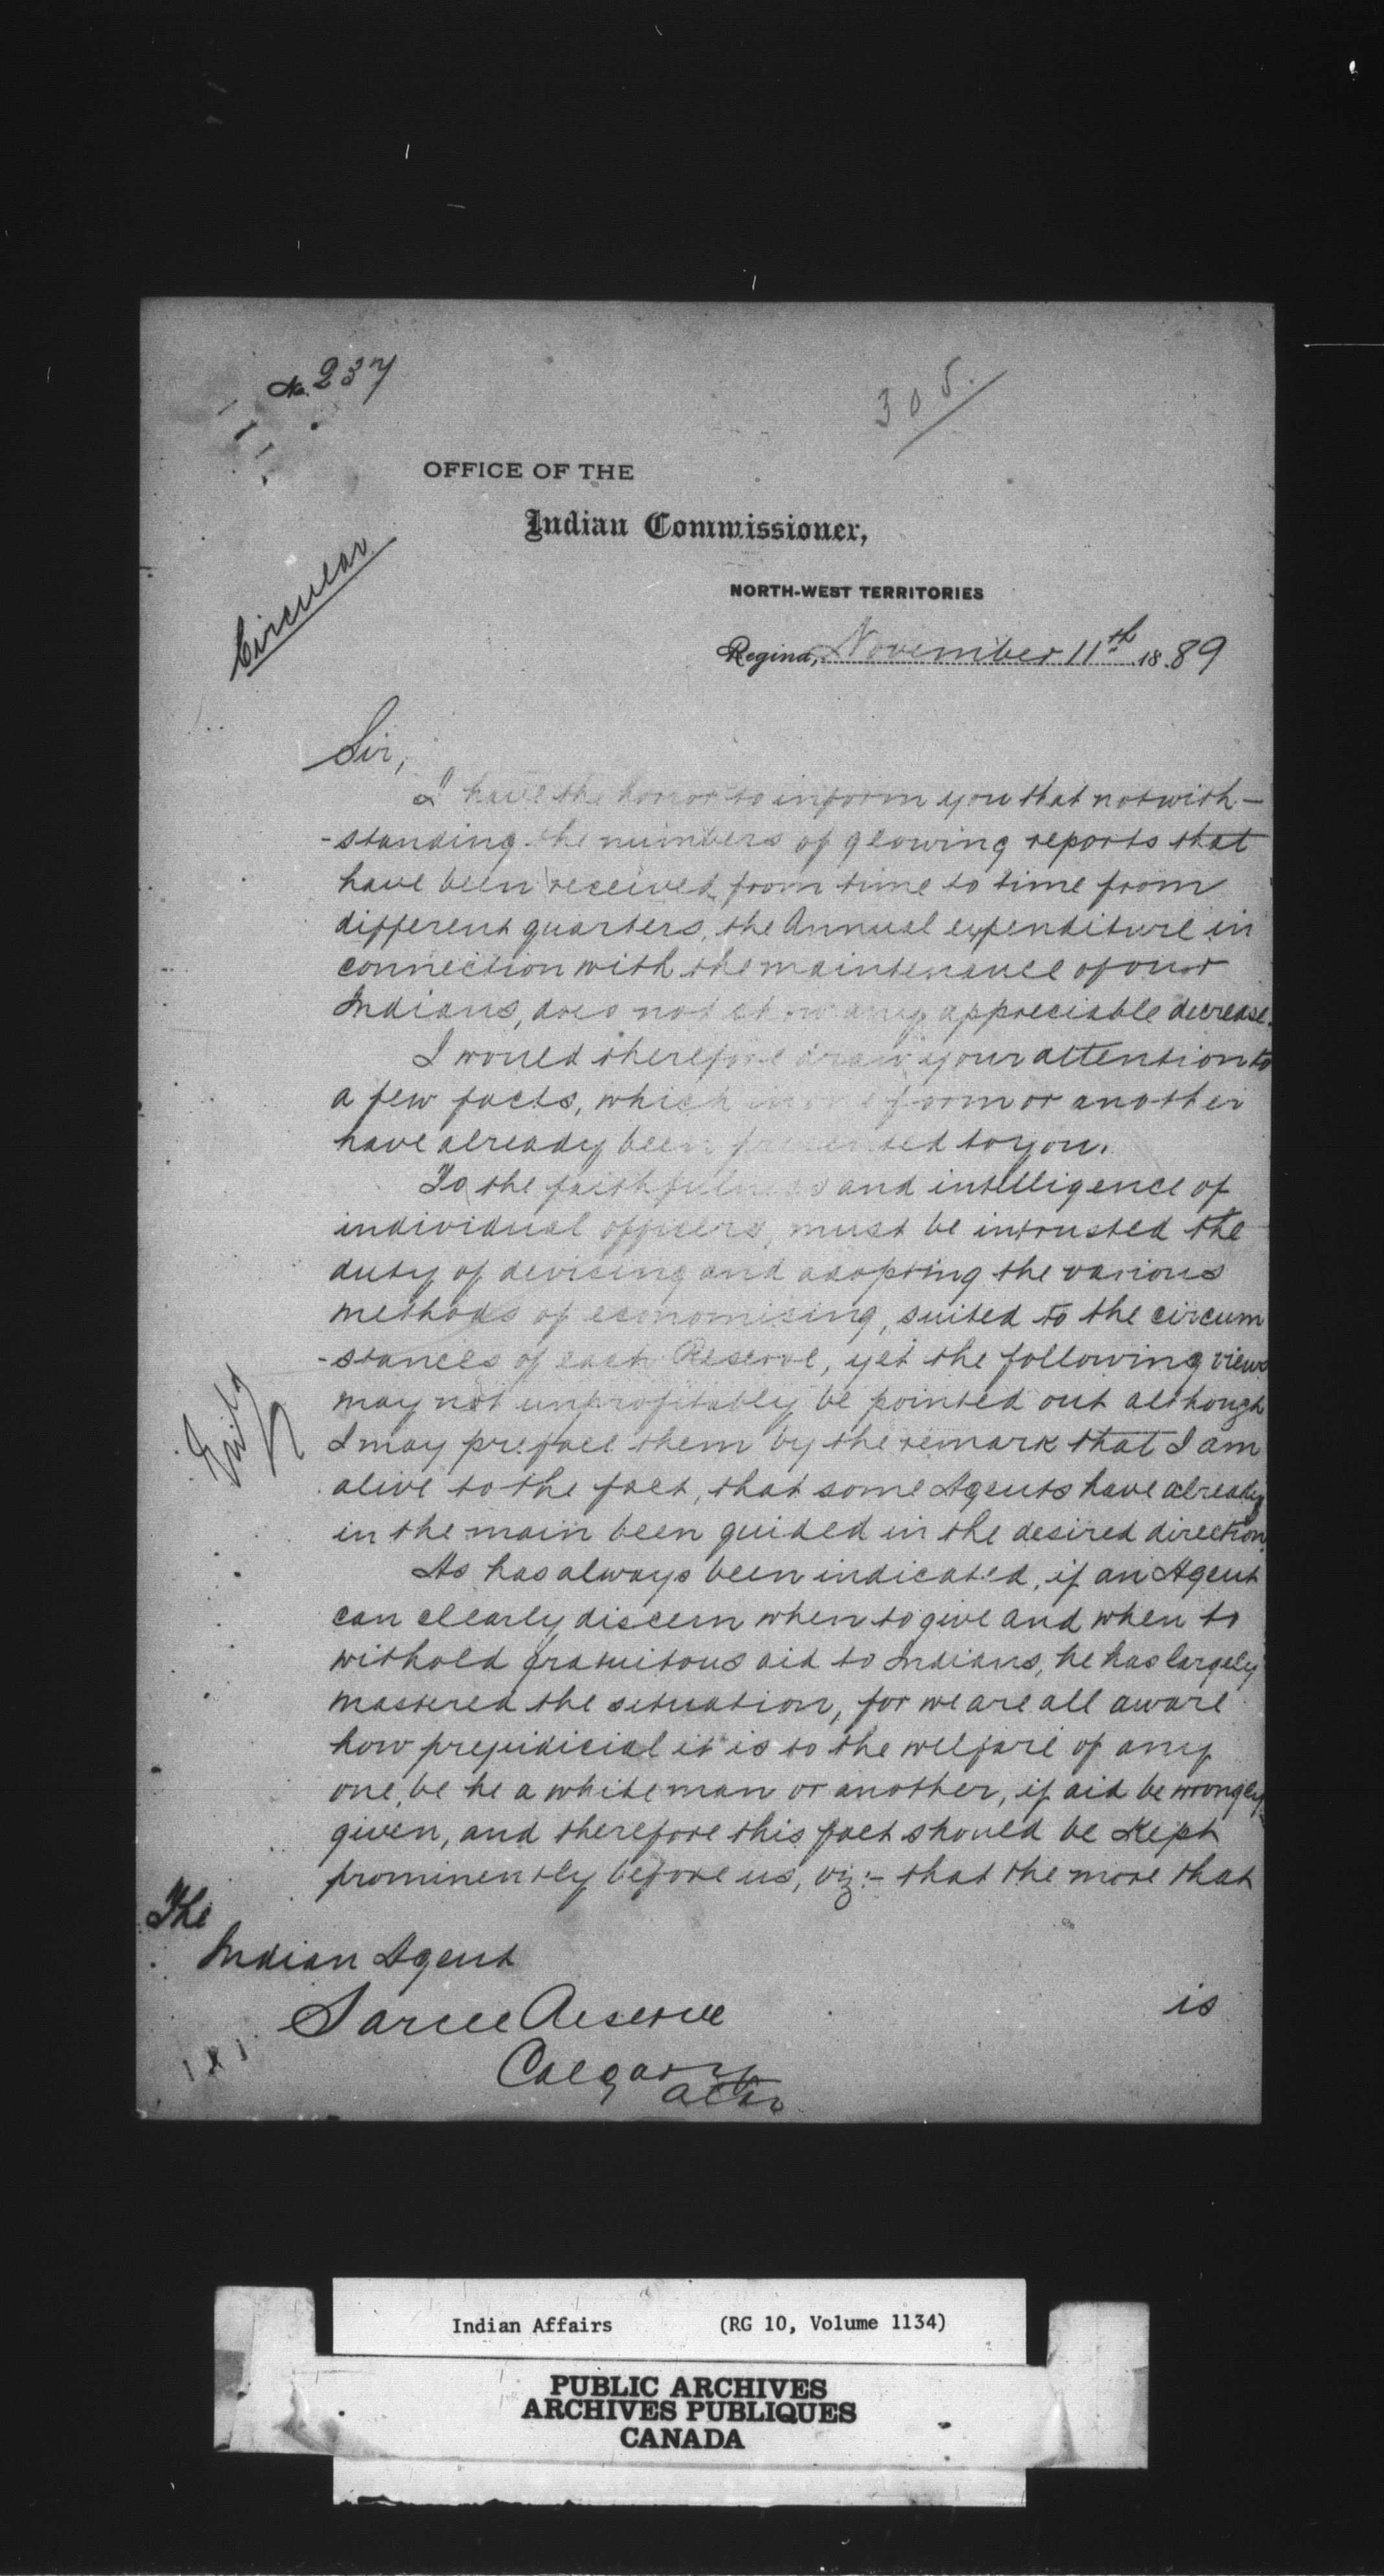 No. 237
305.
OFFICE OF THE
Indian Commissioner,
NORTH-WEST TERRITORIES
Circular
Regina, November 11th 1889
Sir,
I have the honor to inform you that notwith-
-standing the numbers of glowing reports that
have been received from time to time from
different quarters, the Annual expenditure in
connection with the maintenance of our
Indians, does not show any appreciable decrease.
I would therefore draw your attention to
a few facts, which in one form or another
have already been presented to you.
To the faithfulness and intelligence of
individual officers, must be intrusted the
duty of devising and adopting the various
methods of economising, suited to the circum
-stances of each Reserve, yet the following views
may not unprofitably be pointed out although
I may preface them by the remark that I am
alive to the fact, that some Agents have already
in the main been guided in the desired direction.
As has always been indicated, if an Agent
can clearly discern when to give and when to
withold gratuitous aid to Indians, he has largely
mastered the situation, for we are all aware
how prejudicial it is to the welfare of any
one, be he a white man or another, if aid be wrongly
given, and therefore this fact should be Kept
prominently before us, viz:- that the more that
The
Indian Agent
Sarcee Reserve
Calgary
Alta
is
Indian Affairs (RG 10, Volume 1134)
PUBLIC ARCHIVES
ARCHIVES PUBLIQUES
CANADA